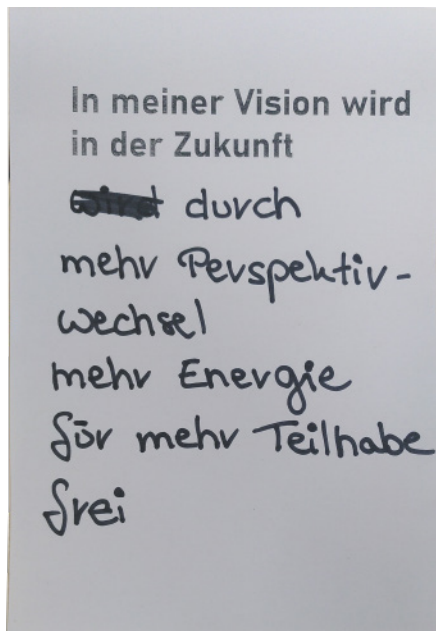 In meiner Vision wird
in der Zukunft
wird durch
mehr Perspektiv-
wechsel
mehr Energie
für mehr Teilhabe
frei